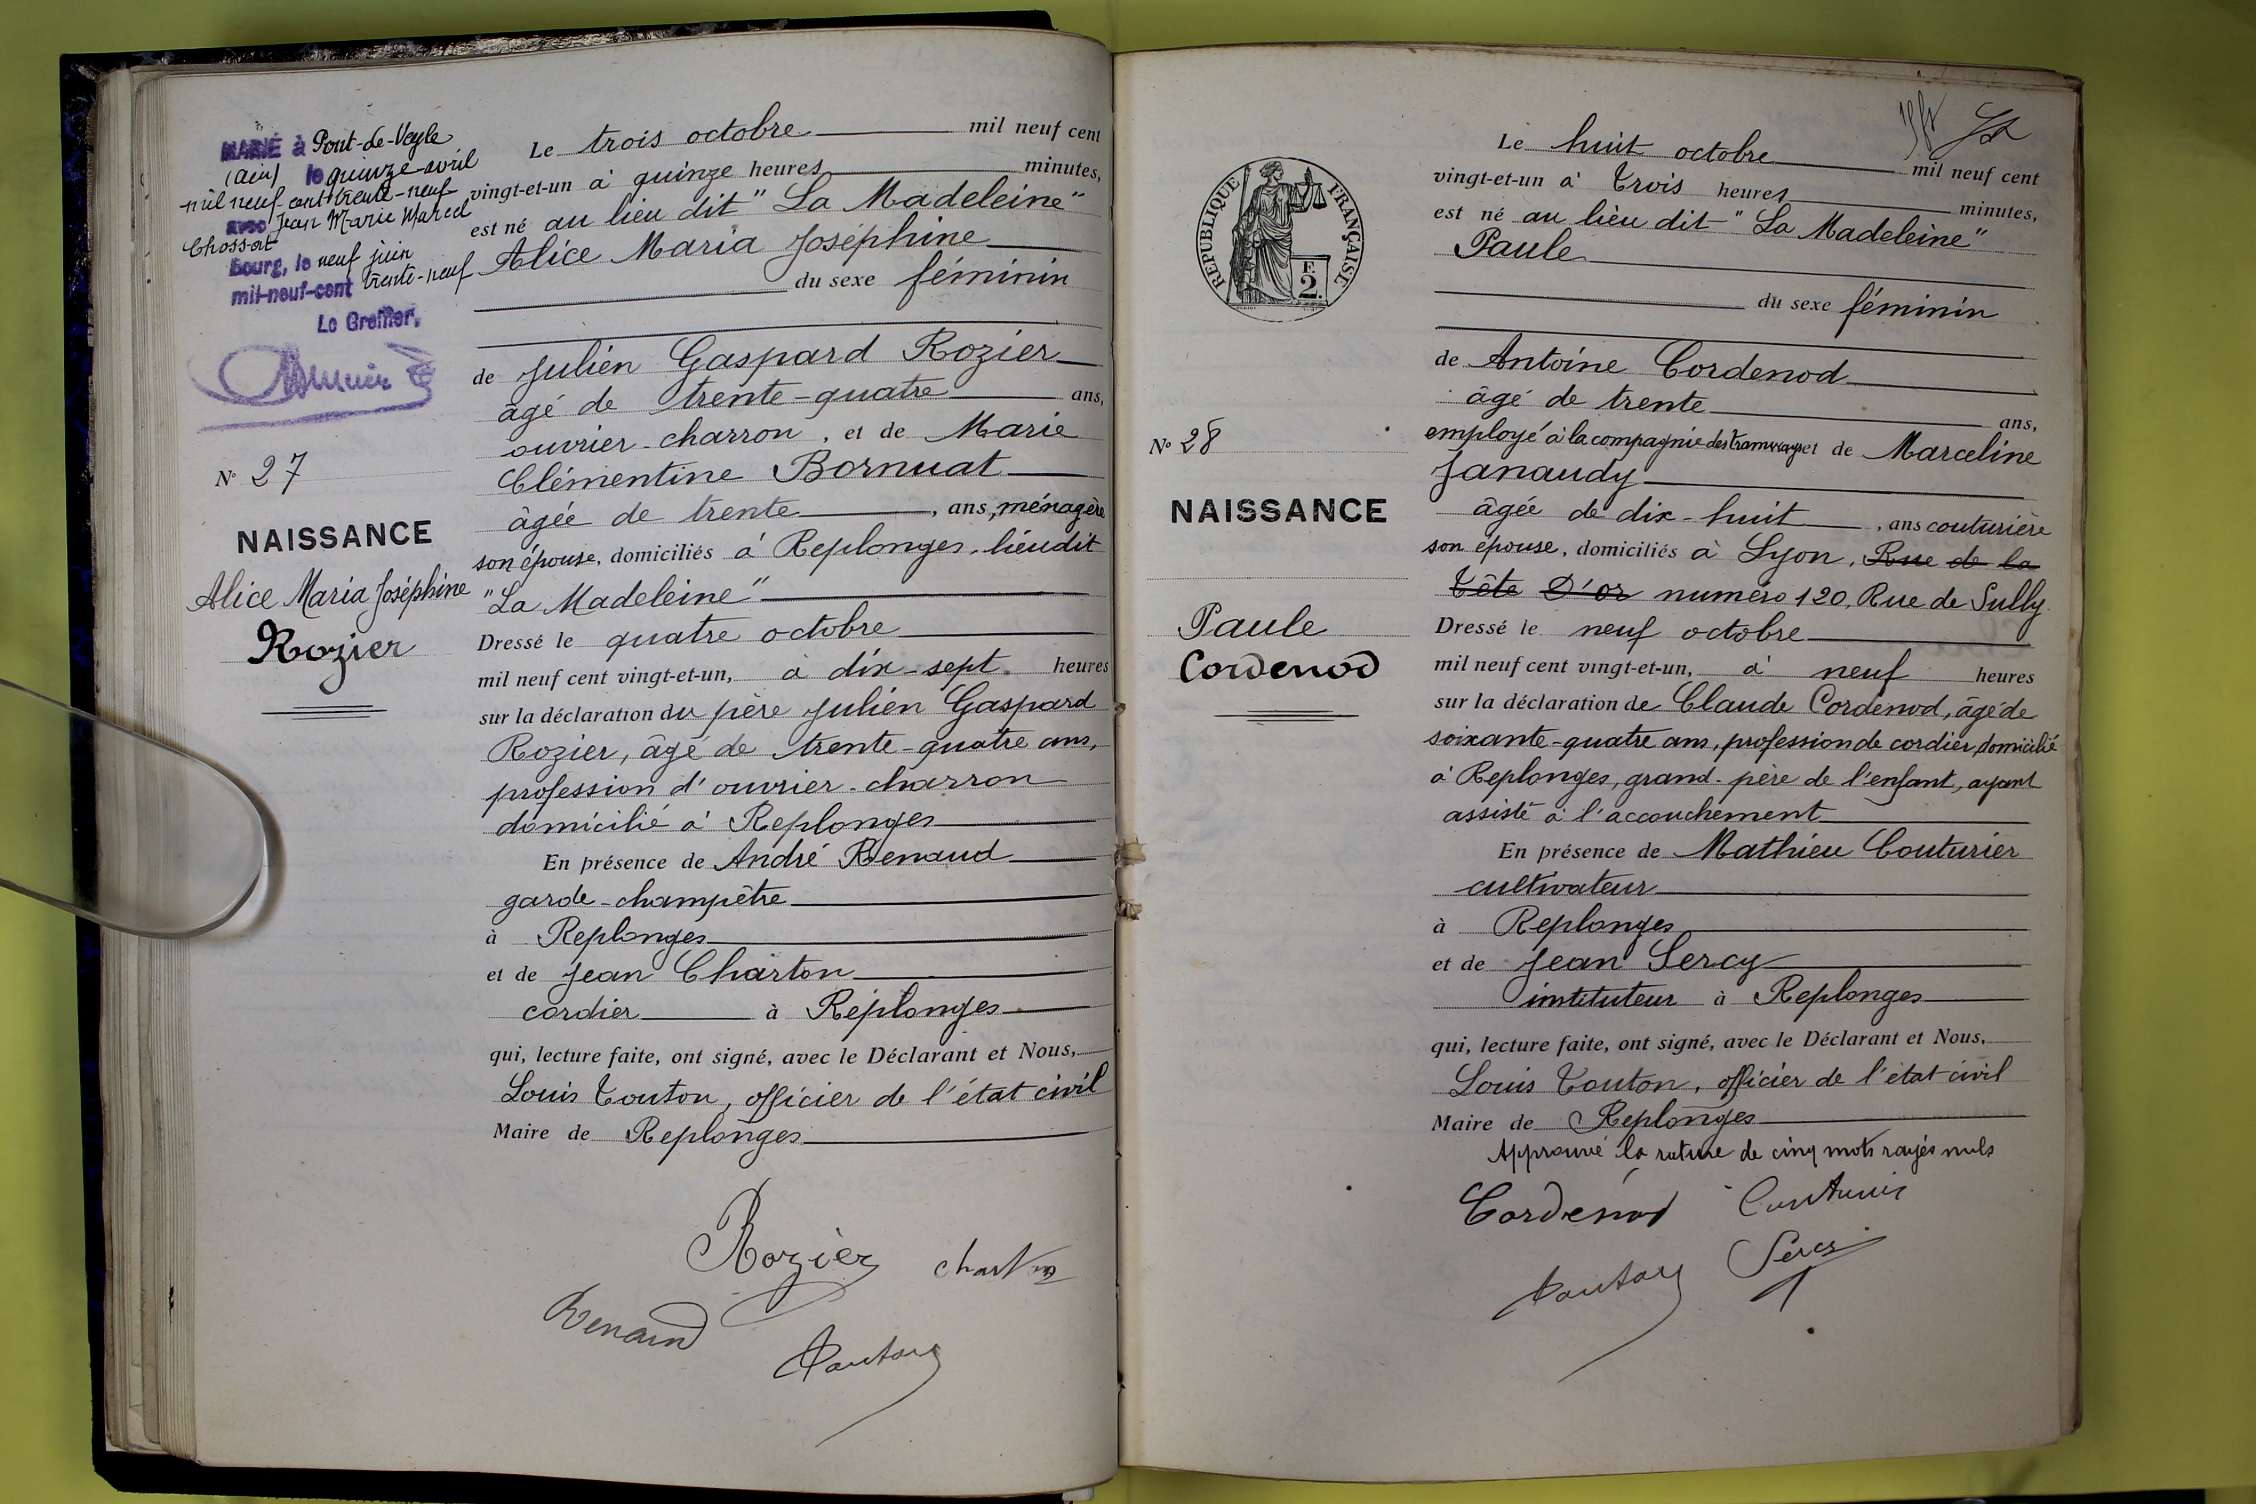 MARIÉ à Pont-de-Veyle
(Ain) le quinze avril
mil neuf-cent trente-neuf
avec Jean Marie Marcel
Chossat
Bourg, le neuf juin
mil-neuf-cent trente-neuf
Le Greffier,
N° 27
NAISSANCE
Alice Maria Joséphine
Rozier
Le trois octobre mil neuf cent
vingt-et-un à quinze heures minutes,
est né au lieu dit "La Madeleine"
Alice Maria Joséphine
du sexe féminin
de Julien Gaspard Rozier
âgé de trente-quatre ans,
ouvrier-charron, et de Marie
Clémentine Bornuat
âgée de trente, ans, ménagère
son épouse, domiciliés à Replonges, lieudit
"La Madeleine"
Dressé le quatre octobre
mil neuf cent vingt-et-un, à dix-sept heures
sur la déclaration du père Julien Gaspard
Rozier, âgé de trente-quatre ans,
profession d'ouvrier-charron
domicilié à Replonges
En présence de André Renaud
garde-champêtre
à Replonges
et de Jean Charton
cordier à Replonges
qui, lecture faite, ont signé, avec le Déclarant et Nous,
Louis Touton, officier de l'état civil
Maire de Replonges
Rozier Charton
Renaud
Touton
RÉPUBLIQUE FRANÇAISE
F.
2.
N° 28
NAISSANCE
Paule
Cordenod
Le huit octobre mil neuf cent
vingt-et-un à Trois heures minutes,
est né au lieu dit "La Madeleine"
Paule
du sexe féminin
de Antoine Cordenod
âgé de trente ans,
employé à la compagnie des tramways et de Marceline
Janaudy
âgée de dix-huit, ans couturière
son épouse, domiciliés à Lyon, Rue de la
Tête D'or numéro 120, Rue de Sully
Dressé le neuf octobre
mil neuf cent vingt-et-un, à neuf heures
sur la déclaration de Claude Cordenod, âgé de
soixante-quatre ans, profession de cordier, domicilié
à Replonges, grand-père de l'enfant, ayant
assisté à l'accouchement
En présence de Mathieu Couturier
cultivateur
à Replonges
et de Jean Sercy
instituteur à Replonges
qui, lecture faite, ont signé, avec le Déclarant et Nous,
Louis Touton, officier de l'état civil
Maire de Replonges
Approuvé la rature de cinq mots rayés nuls
Cordenod Couturier
Touton Sercy